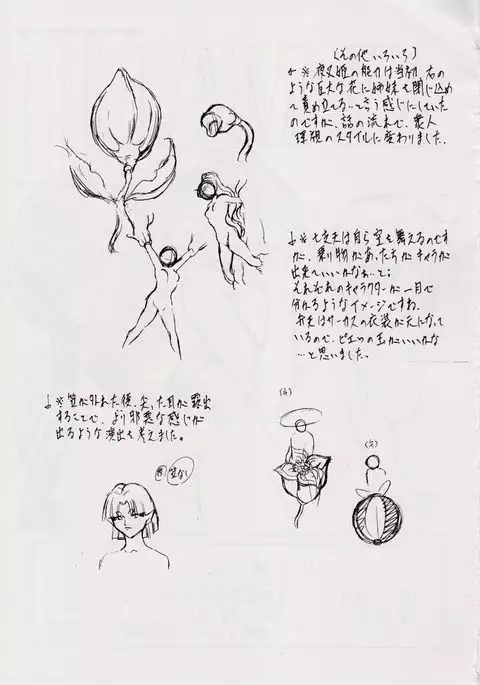 (その他いろいろ)
※夜叉姫の能力は当初、右の
ような巨大な花に姉妹を閉じ込め
て責め立てる…と言う感じにしていた
のですが、話の流れで、衆人
環視のスタイルに変わりました。
※七支天は自ら空を舞えるのです
が、乗り物があった方がキャラが
出来ていいかなぁ…と;
それぞれのキャラクターが一目で
分かるようなイメージですね。
弁天はサーカスの衣装が元になって
いるので、ピエロの玉がいいかな
…と思いました。
※笠が外れた後、尖った耳が露出
することで、より邪悪な感じが
出るような演出を考えました。
笠なし